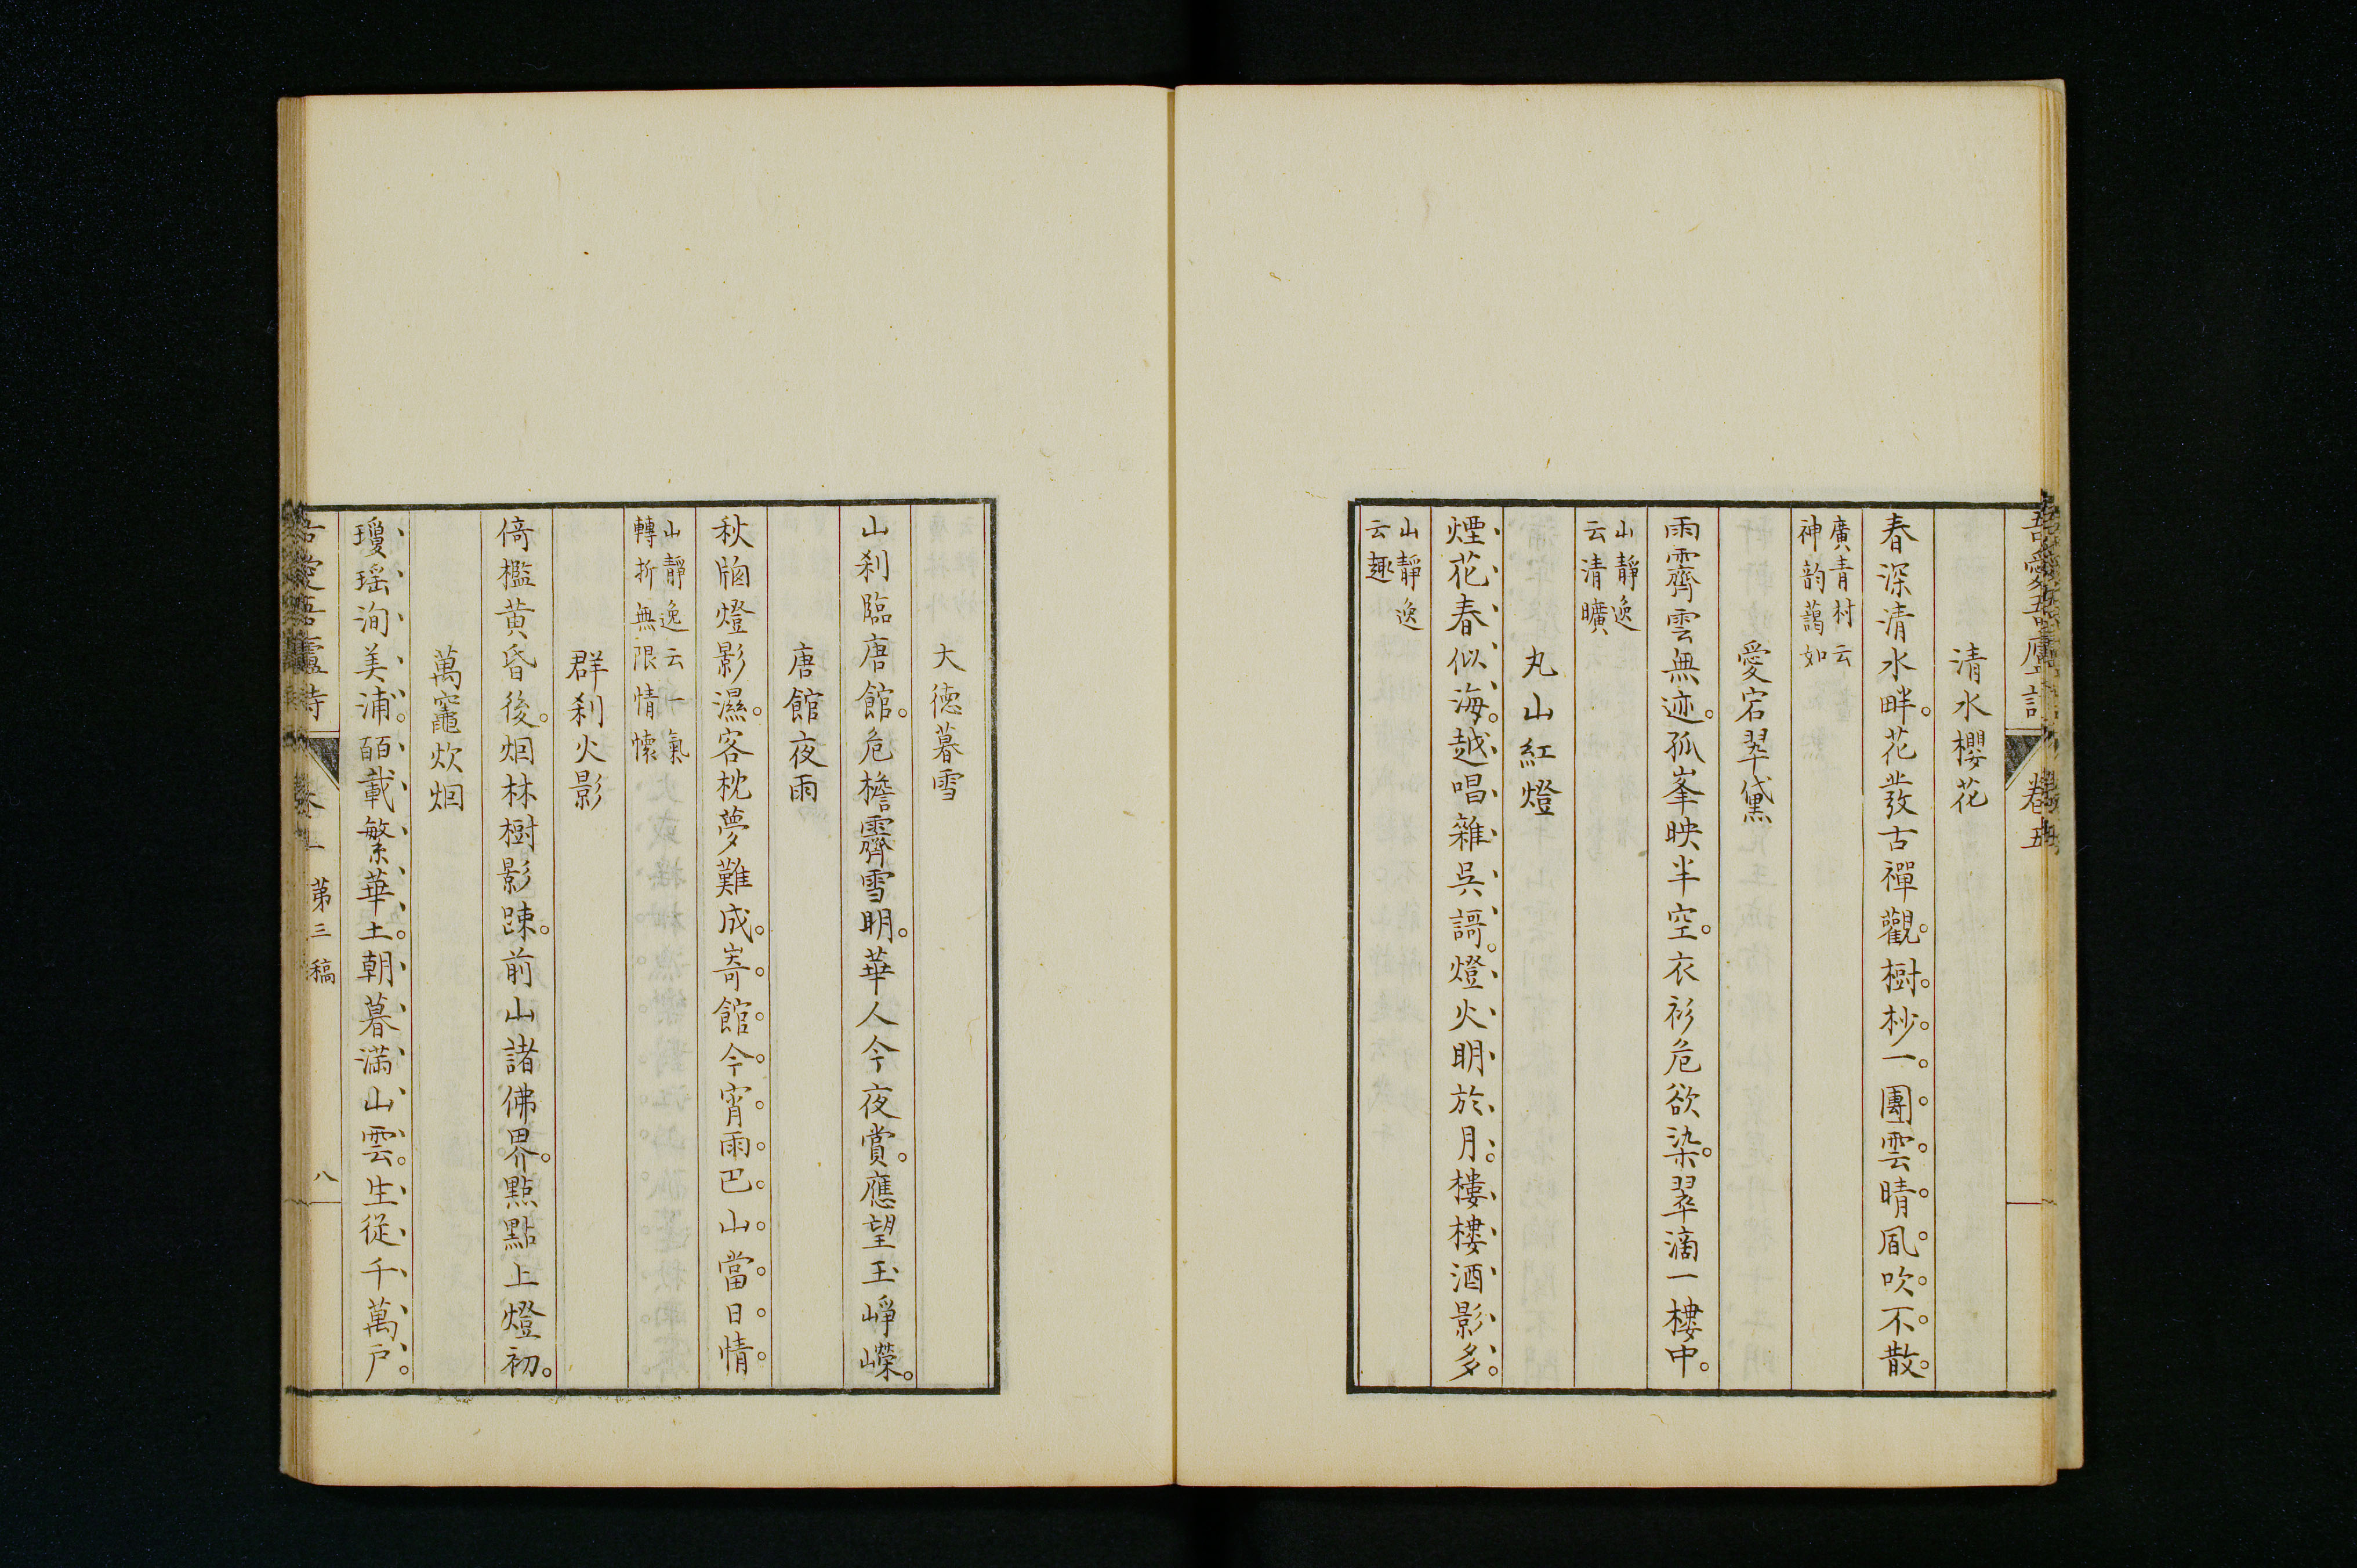 吾愛吾廬詩 卷五
清水櫻花
春深清水畔。花發古禪觀。樹杪一團雲。晴風吹不散。
廣青村云
神韵藹如
愛宕翠黛
雨霽雲無迹。孤峯映半空。衣衫危欲染。翠滴一樓中。
山靜逸
云清曠
丸山紅燈
煙花春似海。越唱雜吳謌。燈火明於月。樓樓酒影多。
山靜逸
云趣
大德暮雪
山刹臨唐館。危檐霽雪明。華人今夜賞。應望玉崢嶸。
唐館夜雨
秋牕燈影濕。客枕夢難成。寄館今宵雨。巴山當日情
山靜逸云一氣
轉折無限情懷
群刹火影
倚檻黄昏後。烟林樹影踈。前山諸佛界。點點上燈初。
萬竈炊烟
瓊瑶洵美浦。百載繁華土。朝暮滿山雲。生從千萬戸。
吾愛吾廬詩
第三稿
八